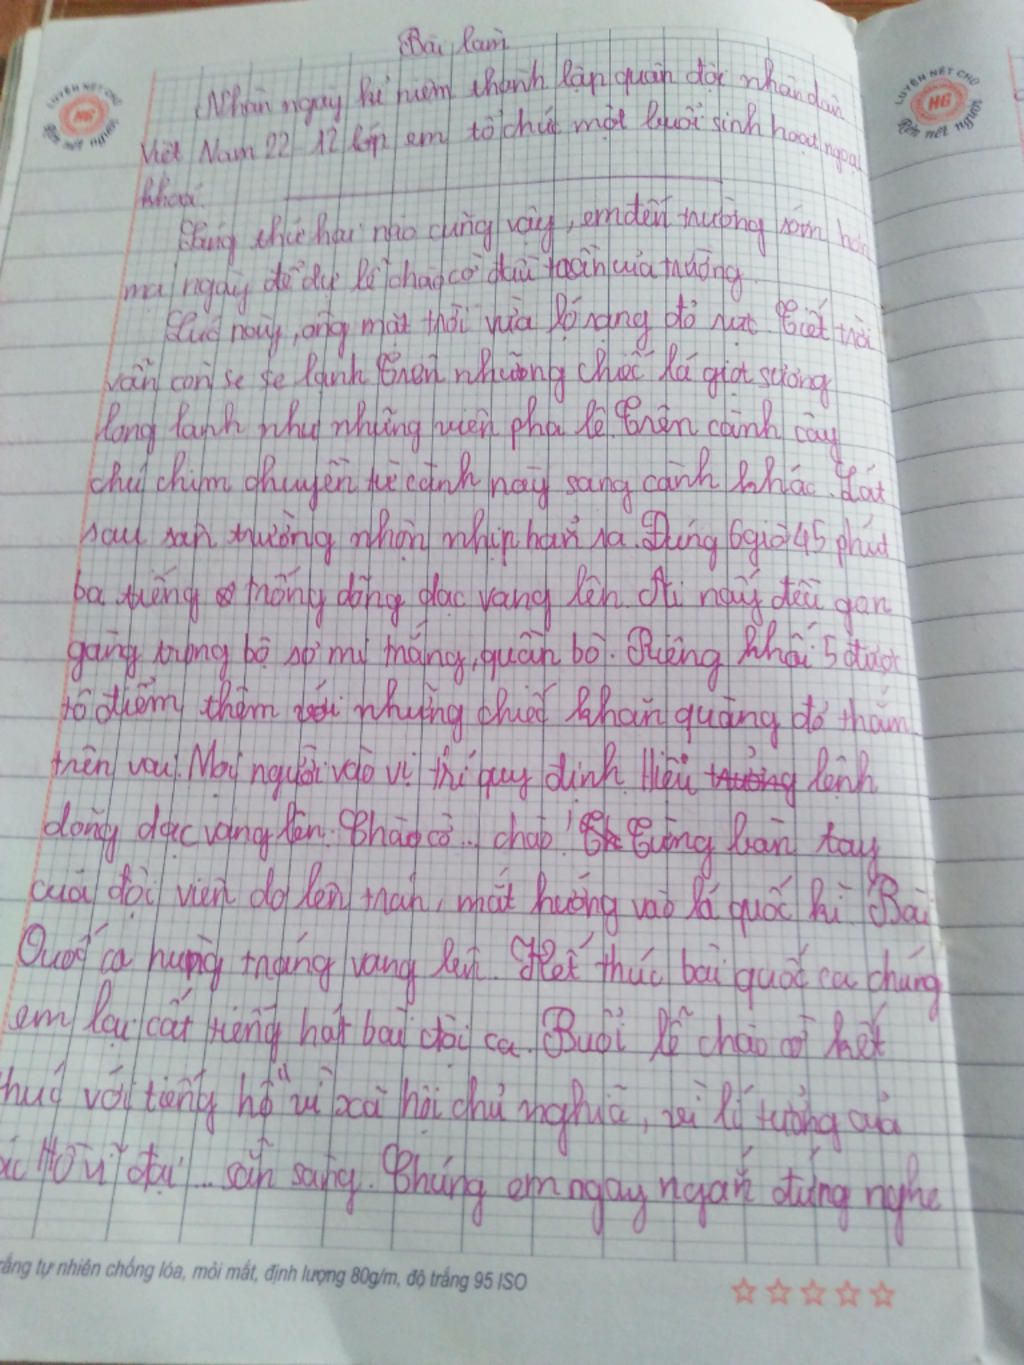 Bài làm
Nhân ngày kỉ niệm thành lập quân đội nhân dân
Việt Nam 22-12 lớp em tổ chức một buổi sinh hoạt ngoại
khoá.
thứ hai nào cũng vậy, em đến trường sớm hơn
mọi ngày để dự lễ chào cờ đầu tuần của trường
Lúc này, ông mặt trời vừa ló rạng đỏ rực. Tiết trời
vẫn còn se se lạnh Trên những chiếc lá giọt sương
long lanh như những viên pha lê. Trên cành cây
chú chim chuyền từ cành này sang cành khác. Lát
sau sân trường nhộn nhịp hẳn ra. Đúng 6 giờ 45 phút
ba tiếng trống dõng dạc vang lên. Ai nấy đều gọn
gàng trong bộ sơ mi trắng, quần bò. Riêng khối 5 được
tô điểm thêm với những chiếc khăn quàng đỏ thắm
trên vai. Mọi người vào vị trí quy định. Hiệu trưởng lệnh
dõng dạc vang lên. Chào cờ... chào! Từng bàn tay
của đội viên đo lên trán, mắt hướng vào lá quốc kì. Bài
Quốc ca hùng tráng vang lên. Kết thúc bài quốc ca chúng
em lại cất tiếng hát bài đội ca. Buổi lễ chào cờ kết
thúc với tiếng hô "vì xã hội chủ nghĩa, vì lí tưởng của
Bác Hồ vĩ đại... sẵn sàng. Chúng em ngay ngắn đứng nghe
LUYỆN NÉT CHỮ
HG
Rèn nết người
LUYỆN NÉT CHỮ
HG
Rèn nết người
trắng tự nhiên chống lóa, mỏi mắt, định lượng 80g/m, độ trắng 95 ISO